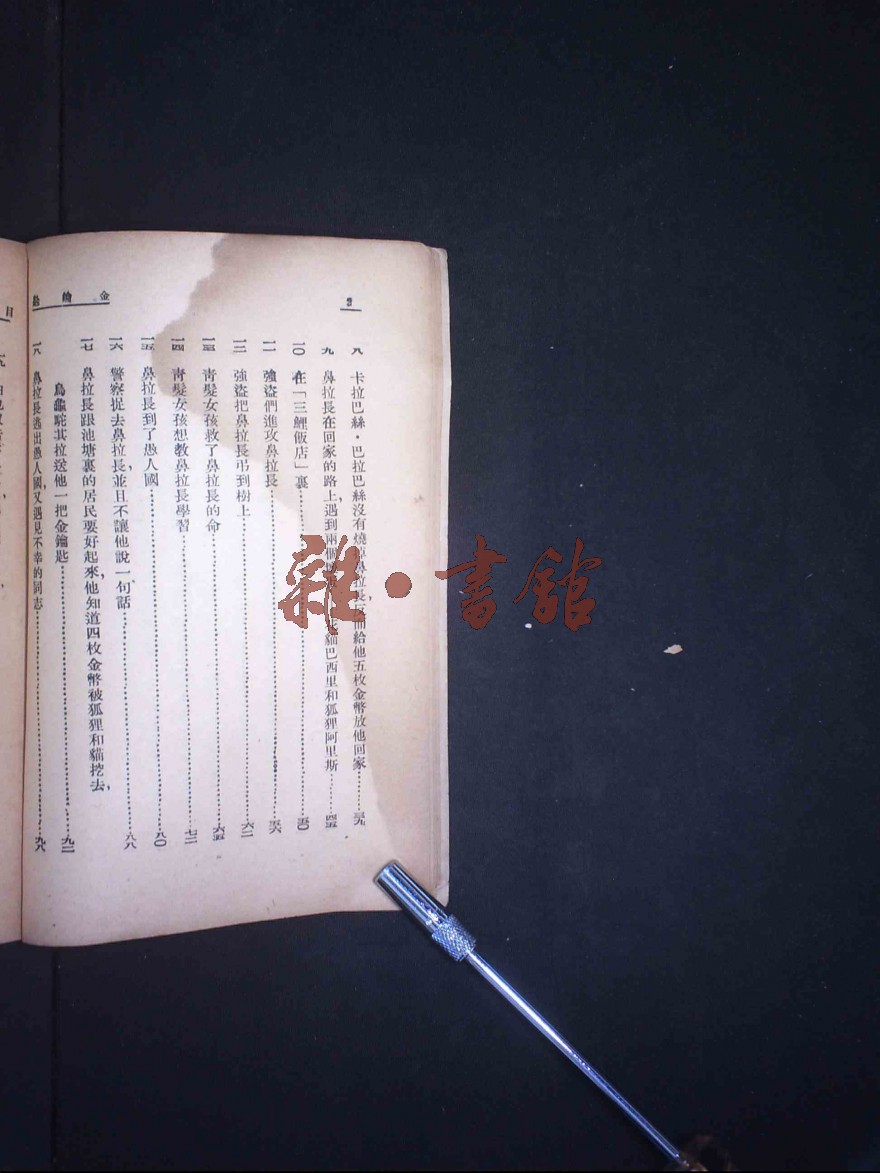 2
金鑰匙
八 卡拉巴絲・巴拉巴絲沒有燒掉鼻拉長,而給他五枚金幣放他回家……三九
九 鼻拉長在回家的路上,遇到兩個 貓巴西里和狐狸阿里斯……四五
一〇 在「三鯉飯店」裏……五〇
一一 強盜們進攻鼻拉長……五六
一二 強盜把鼻拉長弔到樹上……六二
一三 靑髮女孩救了鼻拉長的命……六五
一四 靑髮女孩想敎鼻拉長學習……七二
一五 鼻拉長到了愚人國……八〇
一六 警察捉去鼻拉長,並且不讓他說一句話……八八
一七 鼻拉長跟池塘裏的居民要好起來,他知道四枚金幣被狐狸和貓挖去,
烏龜駝其拉送他一把金鑰匙……九二
一八 鼻拉長逃出愚人國,又遇見不幸的同志……九八
目
一九
雜・書館